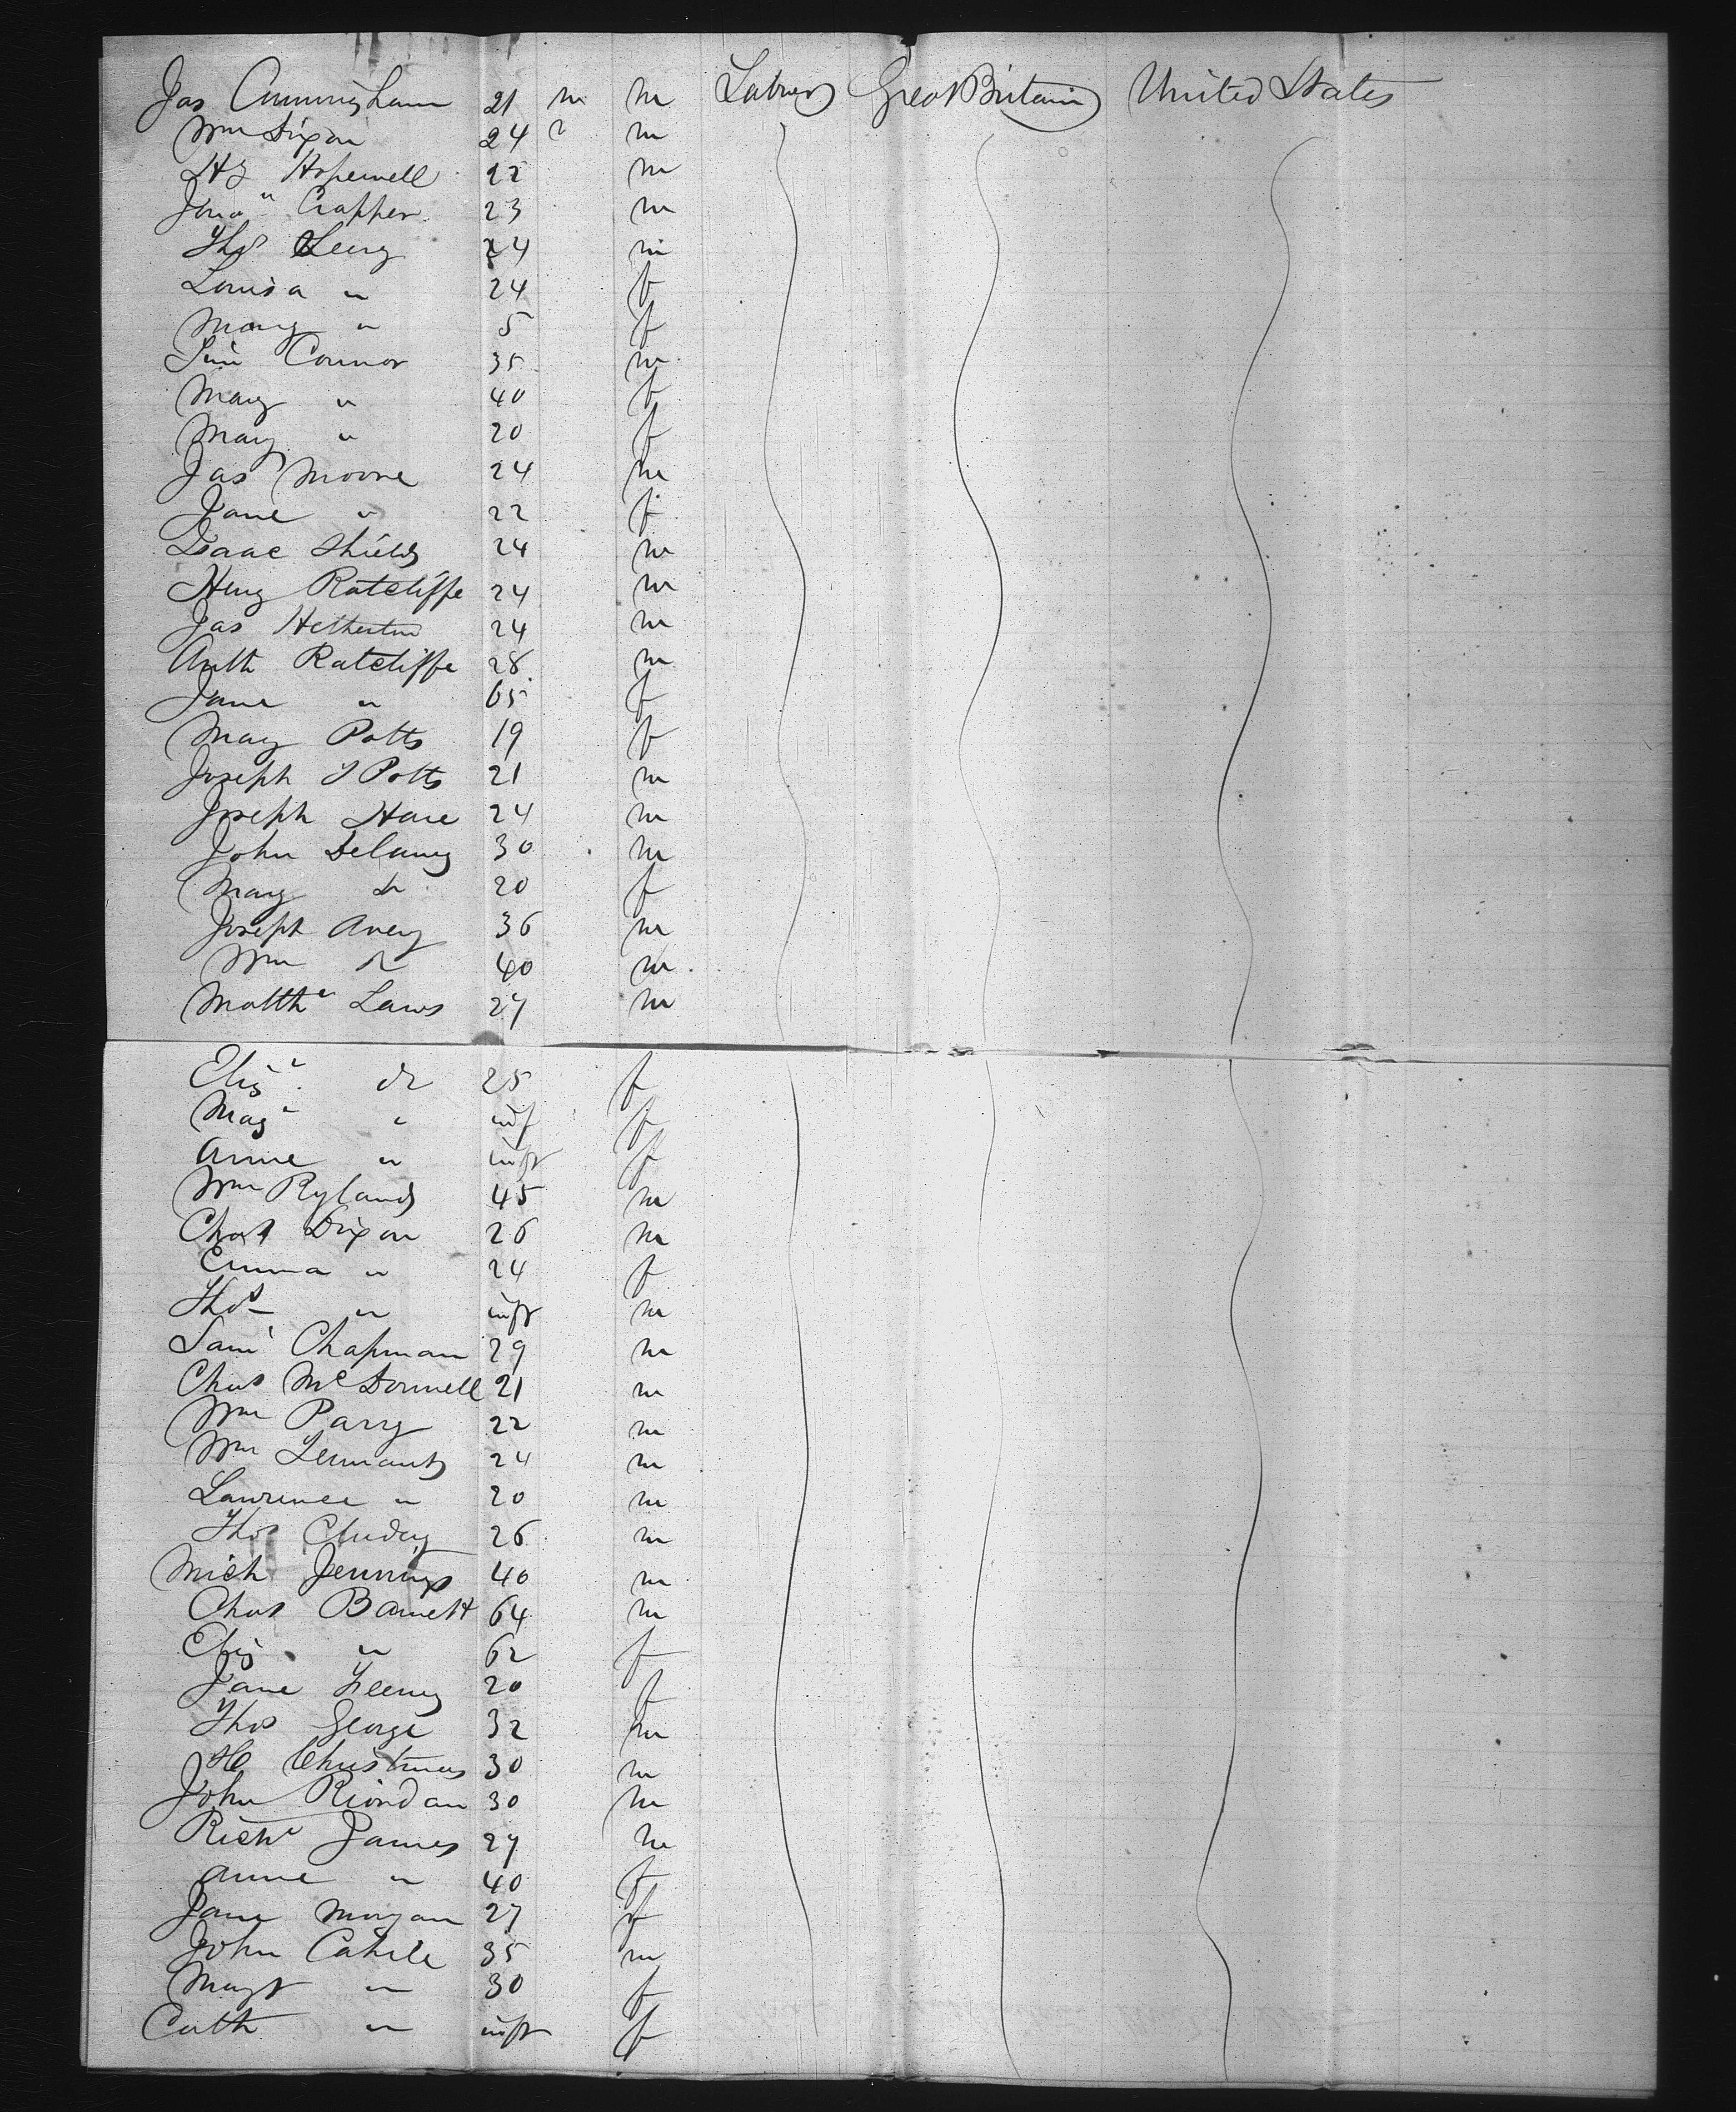 Jas Cunningham 21 m m Labrer Great Britain United States
Wm Dixon 24 m
Hy Hopewell 22 m
Jona " Crapper 23 m
Thos 24 m
Louisa " 24 f
Mary " 5 f
Connor 35 m
Mary " 40 f
Mary " 20 f
Jas Moore 24 m
Jane " 22 f
Isaac Shields 24 m
Heny Ratcliffe 24 m
Jas Hetherton 24 m
Anth Ratcliffe 28 m
Jane " 65 f
Mary Potts 19 f
Joseph J Potts 21 m
Joseph Hare 24 m
John Delaney 30 m
Mary Do 20 f
Joseph Avery 36 m
Wm Do 40 m
Matthw Laws 27 m
Elizh do 25 f
Magt " inf f
Annie " inft f
Wm Rylands 45 m
Chas Dixon 26 m
Emma " 24 f
Thos " inft m
Saml Chapman 29 m
Chas McDonnell 21 m
Wm Parry 22 m
Wm 24 m
Lawrence " 20 m
Thos 26 m
Mich Jennings 40 m
Chas Barnett 64 m
Eliz " 62 f
Jane Feeney 20 f
Thos George 32 m
H Christmas 30 m
John Riordan 30 m
Richd James 27 m
Anne " 40 f
Jane Morgan 27 f
John Cahill 35 m
Magt " 30 f
Cath " inft f